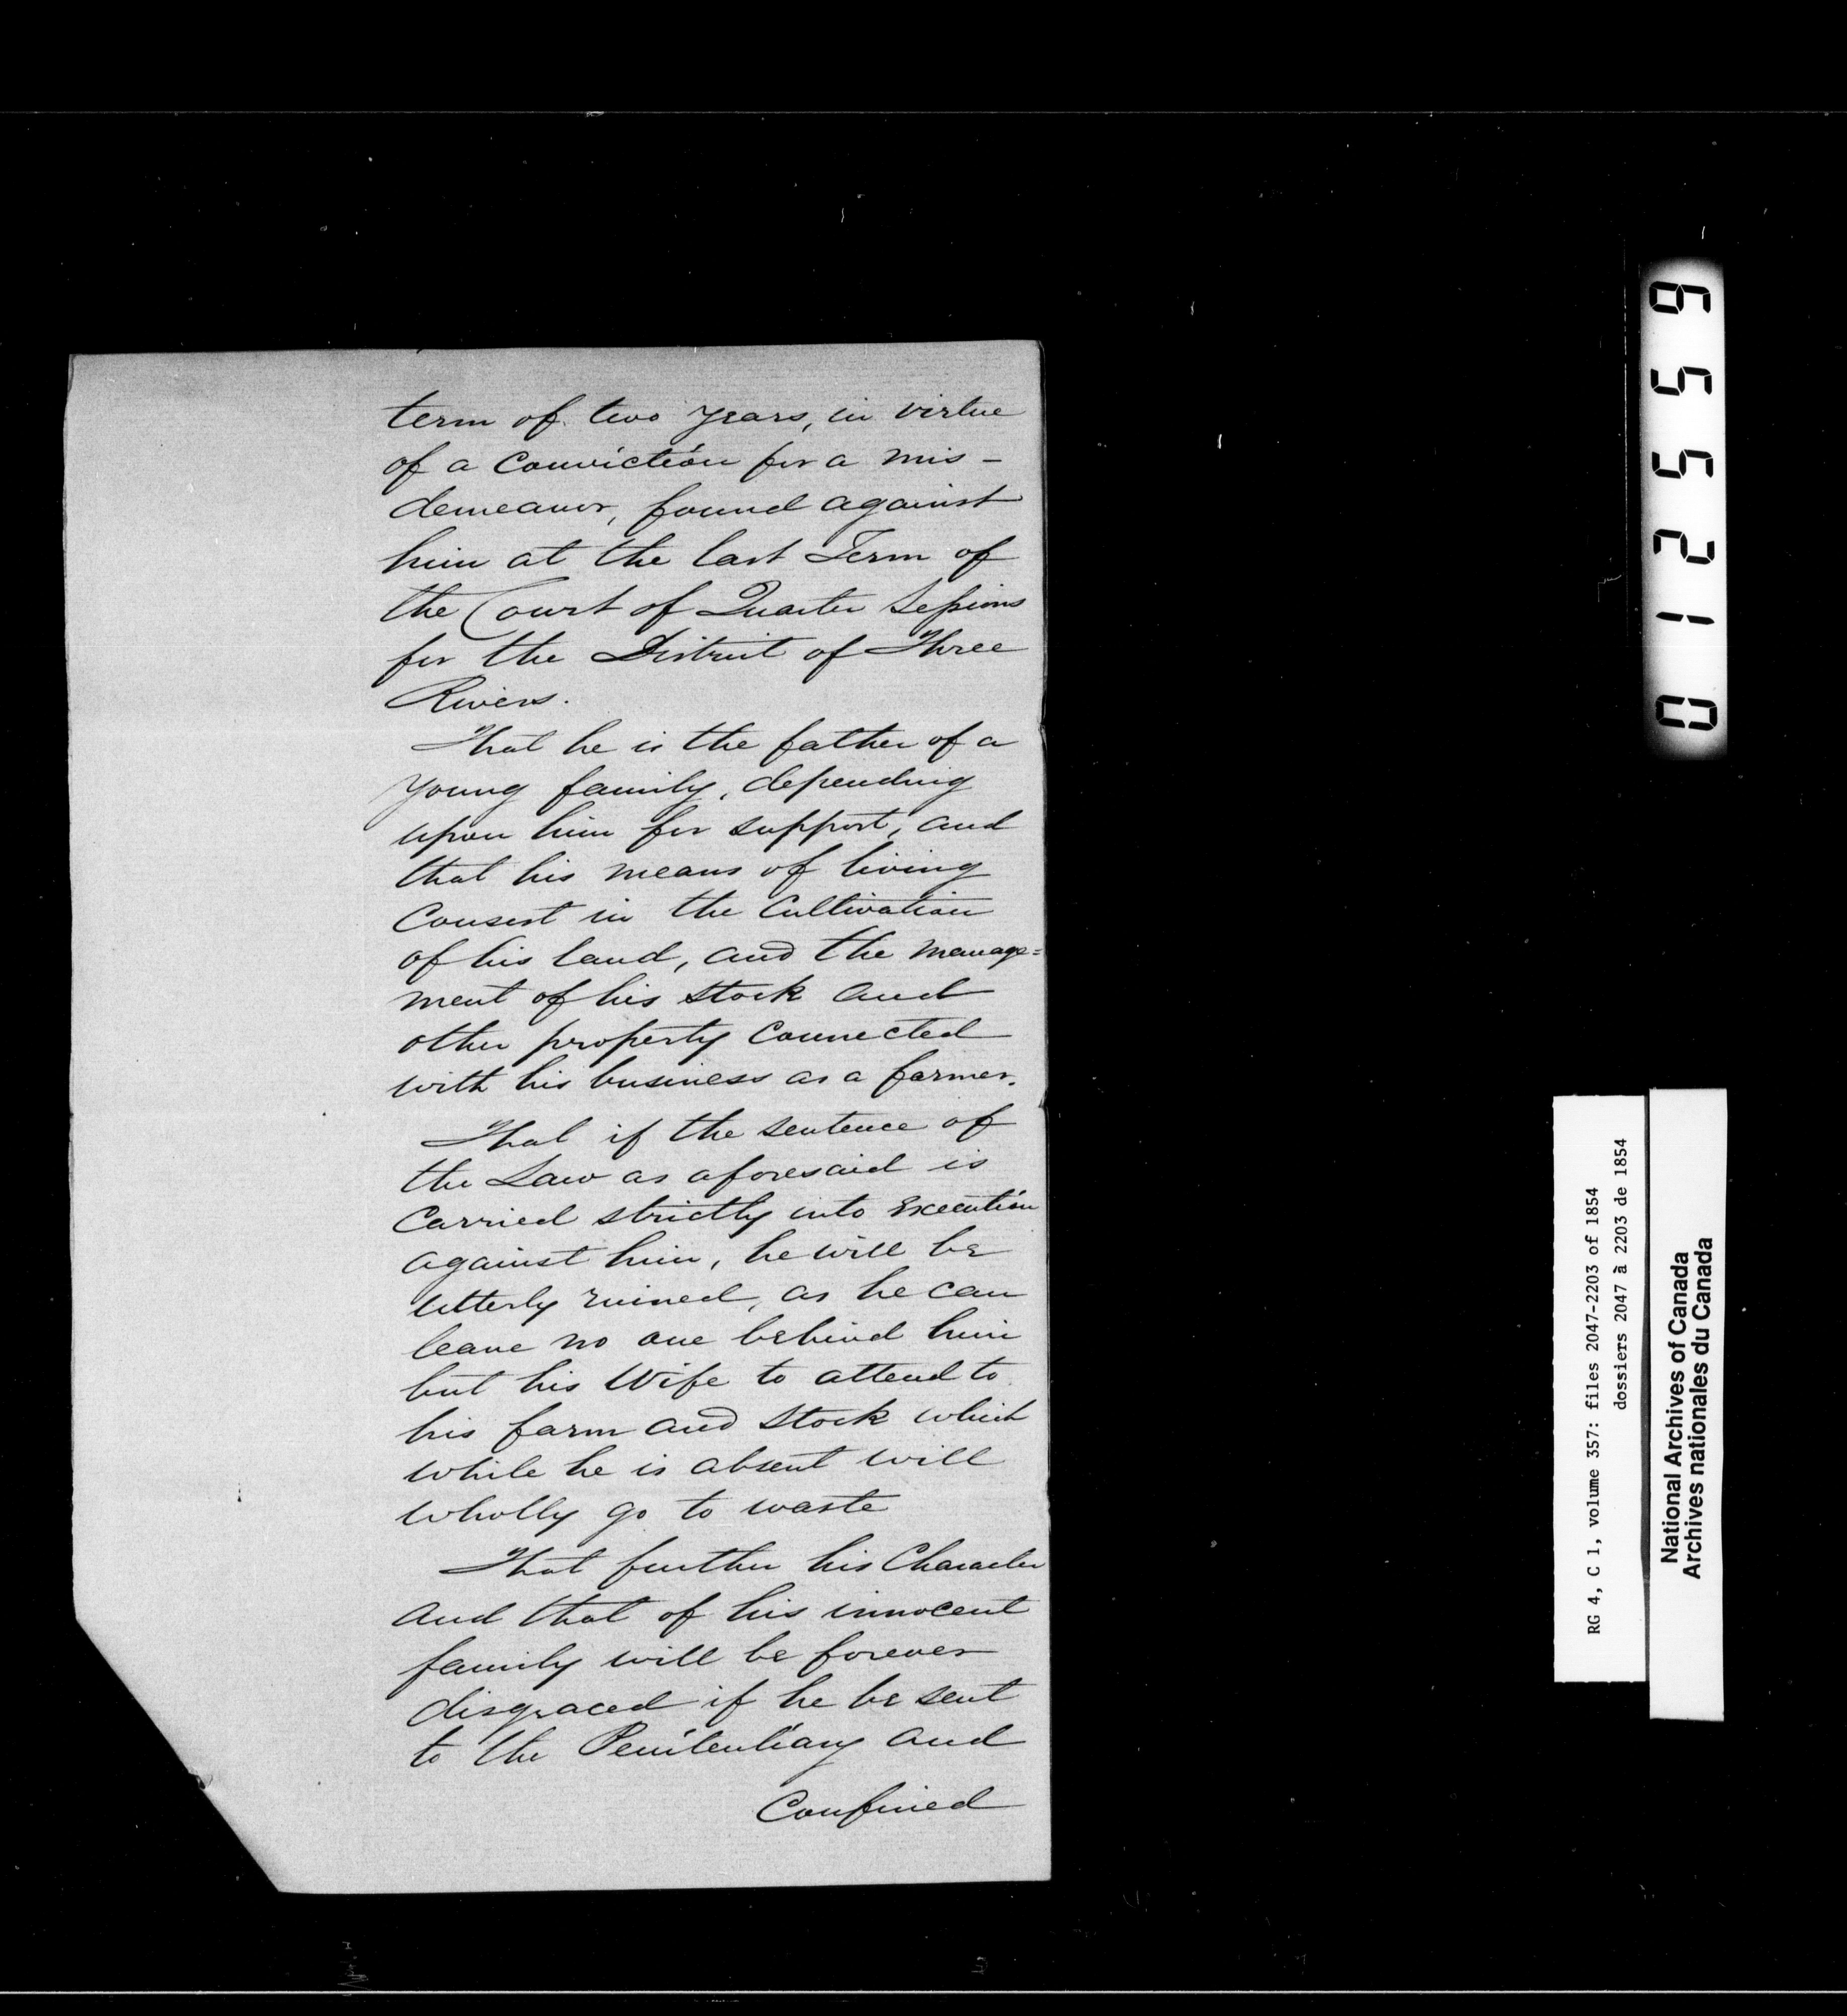 term of two years, in virtue
of a Conviction for a mis-
demeanor, found against
him at the last Term of
the Court of Quarter Sessions
for the District of Three
Rivers.
That he is the father of a
young family, depending
upon him for support, and
that his means of living
Consist in the Cultivation
of his land, and the manage=
ment of his stock and
other property Connected
with his business as a farmer.
That if the sentence of
the Law as aforesaid is
Carried strictly into Execution
against him, he will be
utterly ruined, as he can
leave no one behind him
but his Wife to attend to
his farm and stock which
while he is absent will
wholly go to waste
That further his Character
and that of his innocent
family will be forever
disgraced if he be sent
to the Penitentiary and
Confined
012559
RG 4, C 1, volume 357: files 2047-2203 of 1854
dossiers 2047 à 2203 de 1854
National Archives of Canada
Archives nationales du Canada